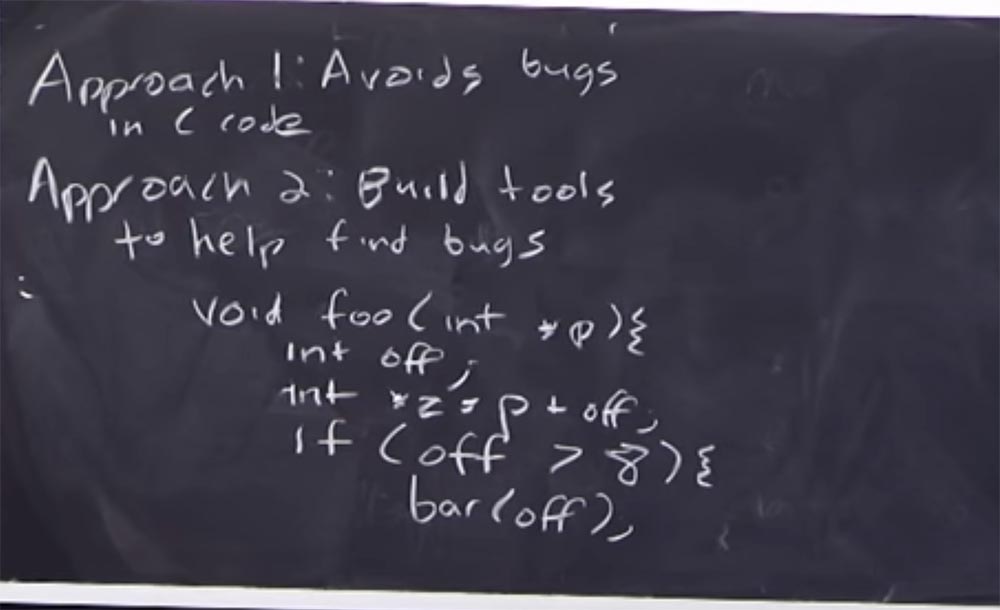 Approach 1: Avoids bugs
in C code
Approach 2: Build tools
to help find bugs
void foo(int *p){
int off;
int *z = p + off;
if (off > 8){
bar(off);